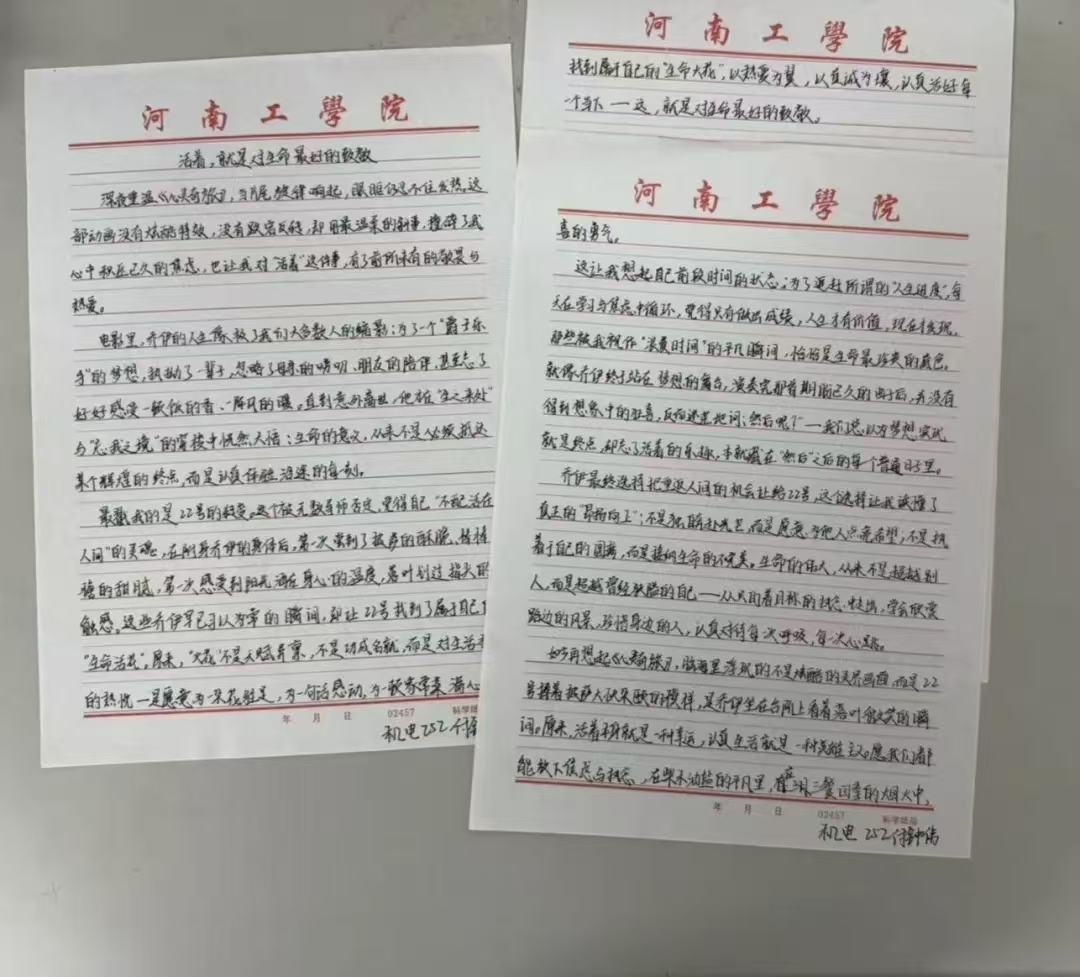 河南工學院
活着，就是对生命最好的致敬
深夜重温《心灵奇旅》，当片尾旋律响起，眼眶仍忍不住发热。这
部动画没有炫酷特效，没有跌宕反转，却用最温柔的叙事，撞碎了我
心中积压已久的焦虑，也让我对“活着”这件事，有了前所未有的敬畏与
热爱。
电影里，乔伊的人生像极了我们大多数人的缩影：为了一个“爵士乐
手”的梦想，执拗了一辈子，忽略了母亲的唠叨、朋友的陪伴，甚至忘了
好好感受一顿饭的香、一阵风的暖。直到意外离世，他在“生之来处”
与“忘我之境”的穿梭中恍然大悟：生命的意义，从来不是必须抵达
某个辉煌的终点，而是认真体验沿途的每一刻。
最戳我的是22号的转变。这个被无数导师否定，觉得自己“不配活在
人间”的灵魂，在附身乔伊的身体后，第一次尝到了披萨的酥脆、棒棒
糖的甜腻，第一次感受到阳光洒在身心的温度、落叶划过指尖的
触感。这些乔伊早已习以为常的瞬间，却让22号找到了属于自己
“生命活花”。原来，“火花”不是天赋异禀，不是功成名就，而是对生活
的热忱——是愿意为一朵花驻足，为一句话感动，为一顿家常菜满心
年 月 日 02457 科学纸品
机电252
河南工學院
喜的勇气。
这让我想起自己前段时间的状态。为了追赶所谓的“人生进度”，每
天在学习与焦虑中循环，觉得只有做出成绩，人生才有价值，现在才发现，
那些被我视作“浪费时间”的平凡瞬间，恰恰是生命最珍贵的底色。
就像乔伊终于站在梦想的舞台，演奏完那首期盼已久的曲子后，并没有
得到想象中的狂喜，反而迷茫地问：然后呢？——我们总以为梦想实现
就是终点，却忘了活着的乐趣，本就藏在“然后”之后的每个普通日子里。
乔伊最终选择把重返人间的机会让给22号，这个选择让我读懂了
真正的“昂扬向上”：不是独自奔赴光芒，而是愿意为他人点亮希望；不是执
着于自己的圆满，而是接纳生命的不完美。生命的伟大，从来不是超越别
人，而是超越曾经狭隘的自己——从只盯着目标的执念中走出，学会欣赏
路边的风景，珍惜身边的人，认真对待每一次呼吸、每一次心跳。
如今再想起《心灵奇旅》，脑海里浮现的不是炫酷的灵界画面，而是22
号捧着披萨大快朵颐的模样，是乔伊坐在台阶上看着落叶微笑的瞬
间。原来，活着本身就是一种幸运，认真生活就是一种英雄主义。愿我们都
能放下焦虑与执念，在柴米油盐的平凡里，在三餐四季的烟火中，
年 月 日 02457 科学纸品
机电 252
河南工學院
找到属于自己的“生命火花”，以热爱为翼，以真诚为壤，认真活好每
一个当下——这，就是对生命最好的致敬。